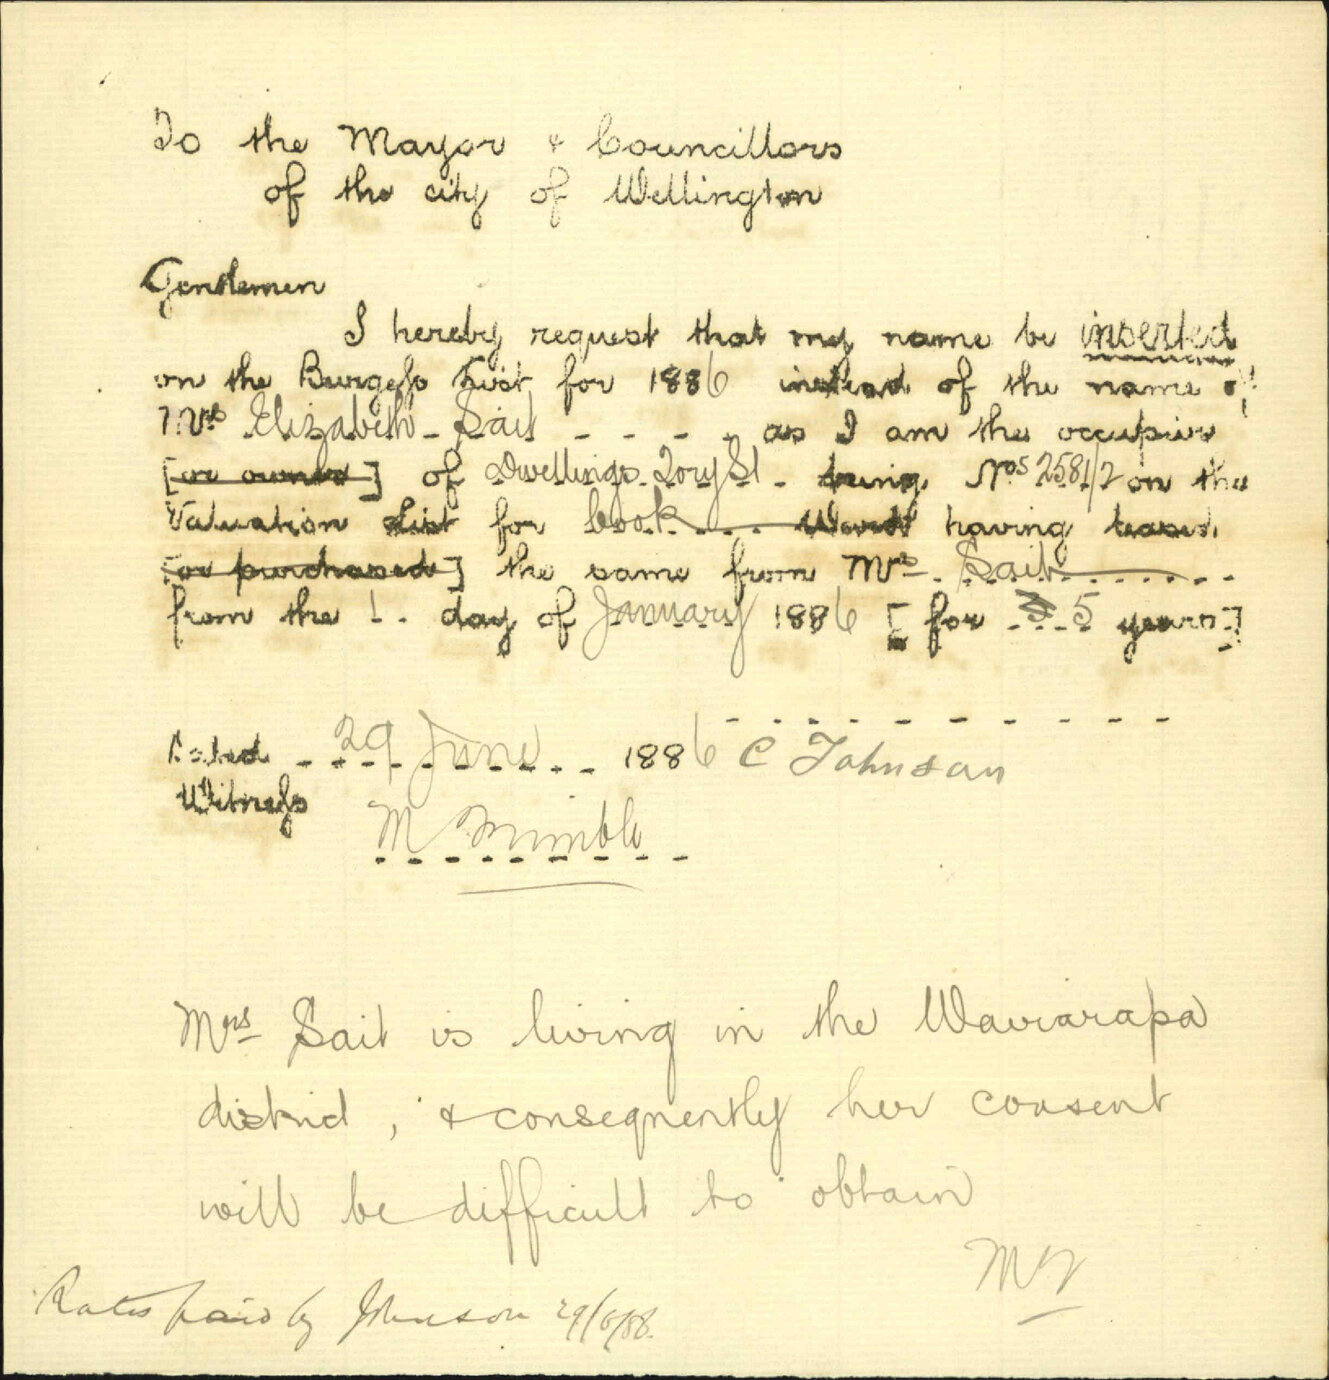 To the Mayor & Councillors
of the city of Wellington
Gentlemen
I hereby request that my name be inserted
on the Burgess List for 1886 instead of the name of
Mrs Elizabeth Sait as I am the occupier
[or owner] of Dwellings Tory St being Nos 2581/2 on the
Valuation List for Cook Ward having leased
[or purchased] the same from Mrs Sait
from the 1 day of January 1886 [for 5 years]
Dated 29 June 1886 C Johnson
Witness
M Trimble
Mrs Sait is living in the Wairarapa
district, & consequently her consent
will be difficult to obtain
MT
Rates paid by Johnson